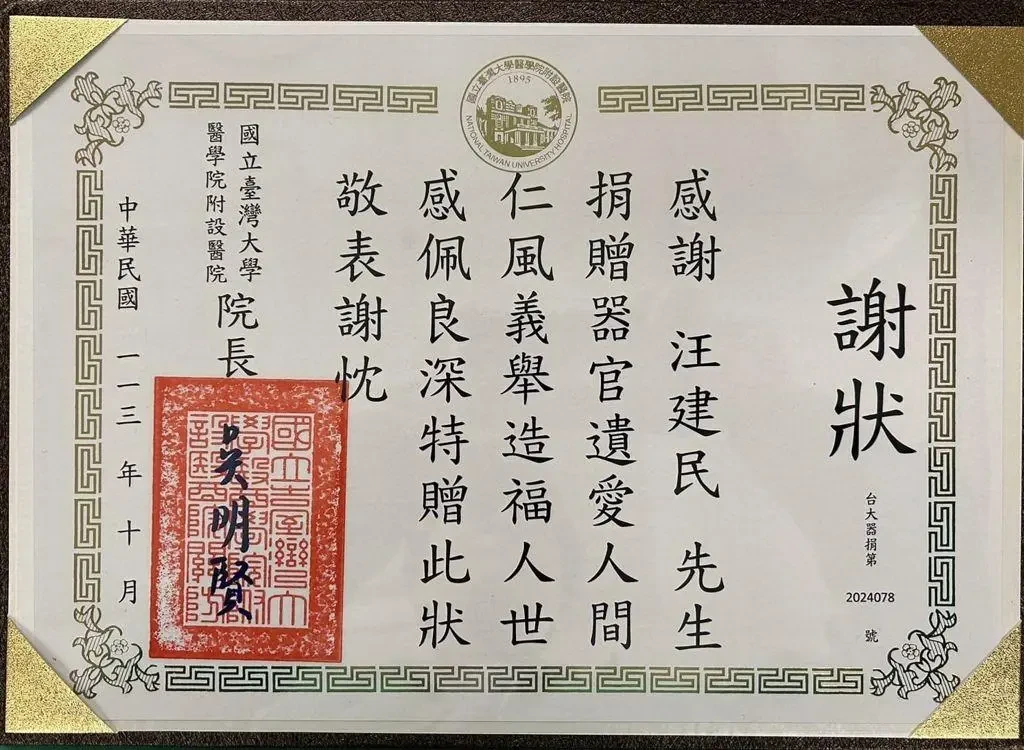 國立臺灣大學醫學院附設醫院
1895
NATIONAL TAIWAN UNIVERSITY HOSPITAL
謝狀
台大器捐第 2024078 號
感謝 汪建民 先生
捐贈器官遺愛人間
仁風義舉造福人世
感佩良深特贈此狀
敬表謝忱
國立臺灣大學
醫學院附設醫院
院長
吳明賢
中華民國 一一三 年 十 月